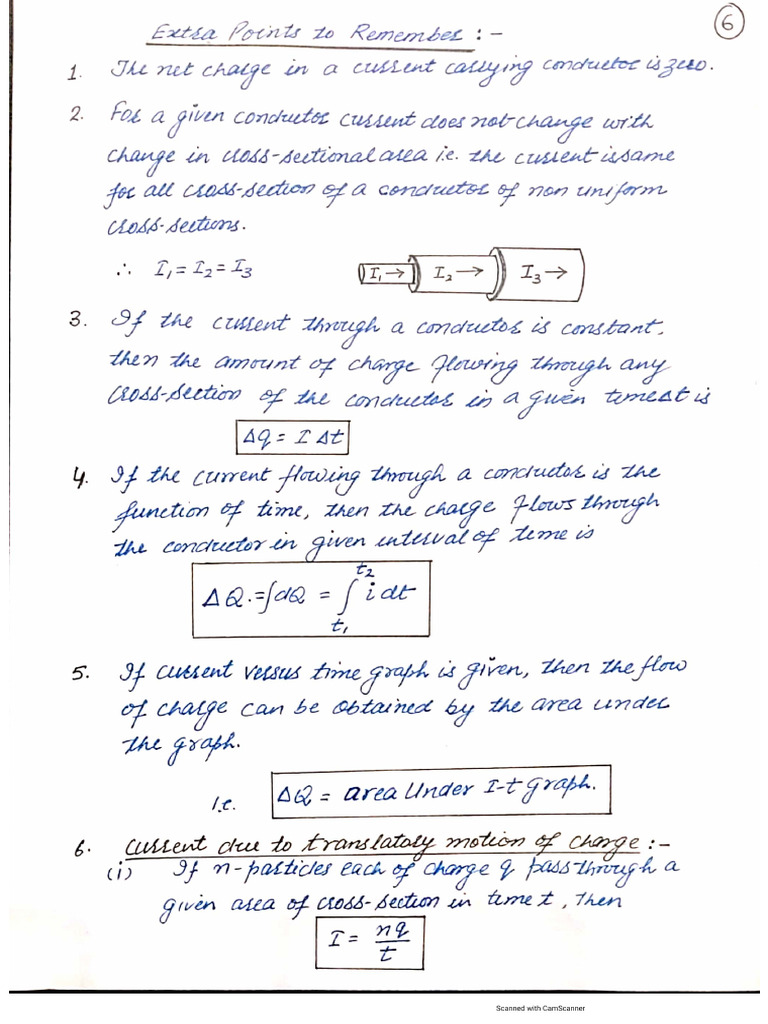 Extra Points to Remember :-
6
1. The net charge in a current carrying conductor is zero.
2. For a given conductor current does not change with
change in cross-sectional area i.e. the current is same
for all cross-section of a conductor of non uniform
cross-sections.
∴ I₁ = I₂ = I₃
I₁ → I₂ → I₃ →
3. If the current through a conductor is constant,
then the amount of charge flowing through any
cross-section of the conductor in a given time Δt is
Δq = I Δt
4. If the current flowing through a conductor is the
function of time, then the charge flows through
the conductor in given interval of time is
ΔQ.=∫dQ = ∫ₜ₁ᵗ² i dt
5. If current versus time graph is given, then the flow
of charge can be obtained by the area under
the graph.
i.e. ΔQ = area under I-t graph.
6. current due to translatory motion of charge :-
(i) If n-particles each of charge q pass through a
given area of cross-section in time t, then
I = nq/t
Scanned with CamScanner